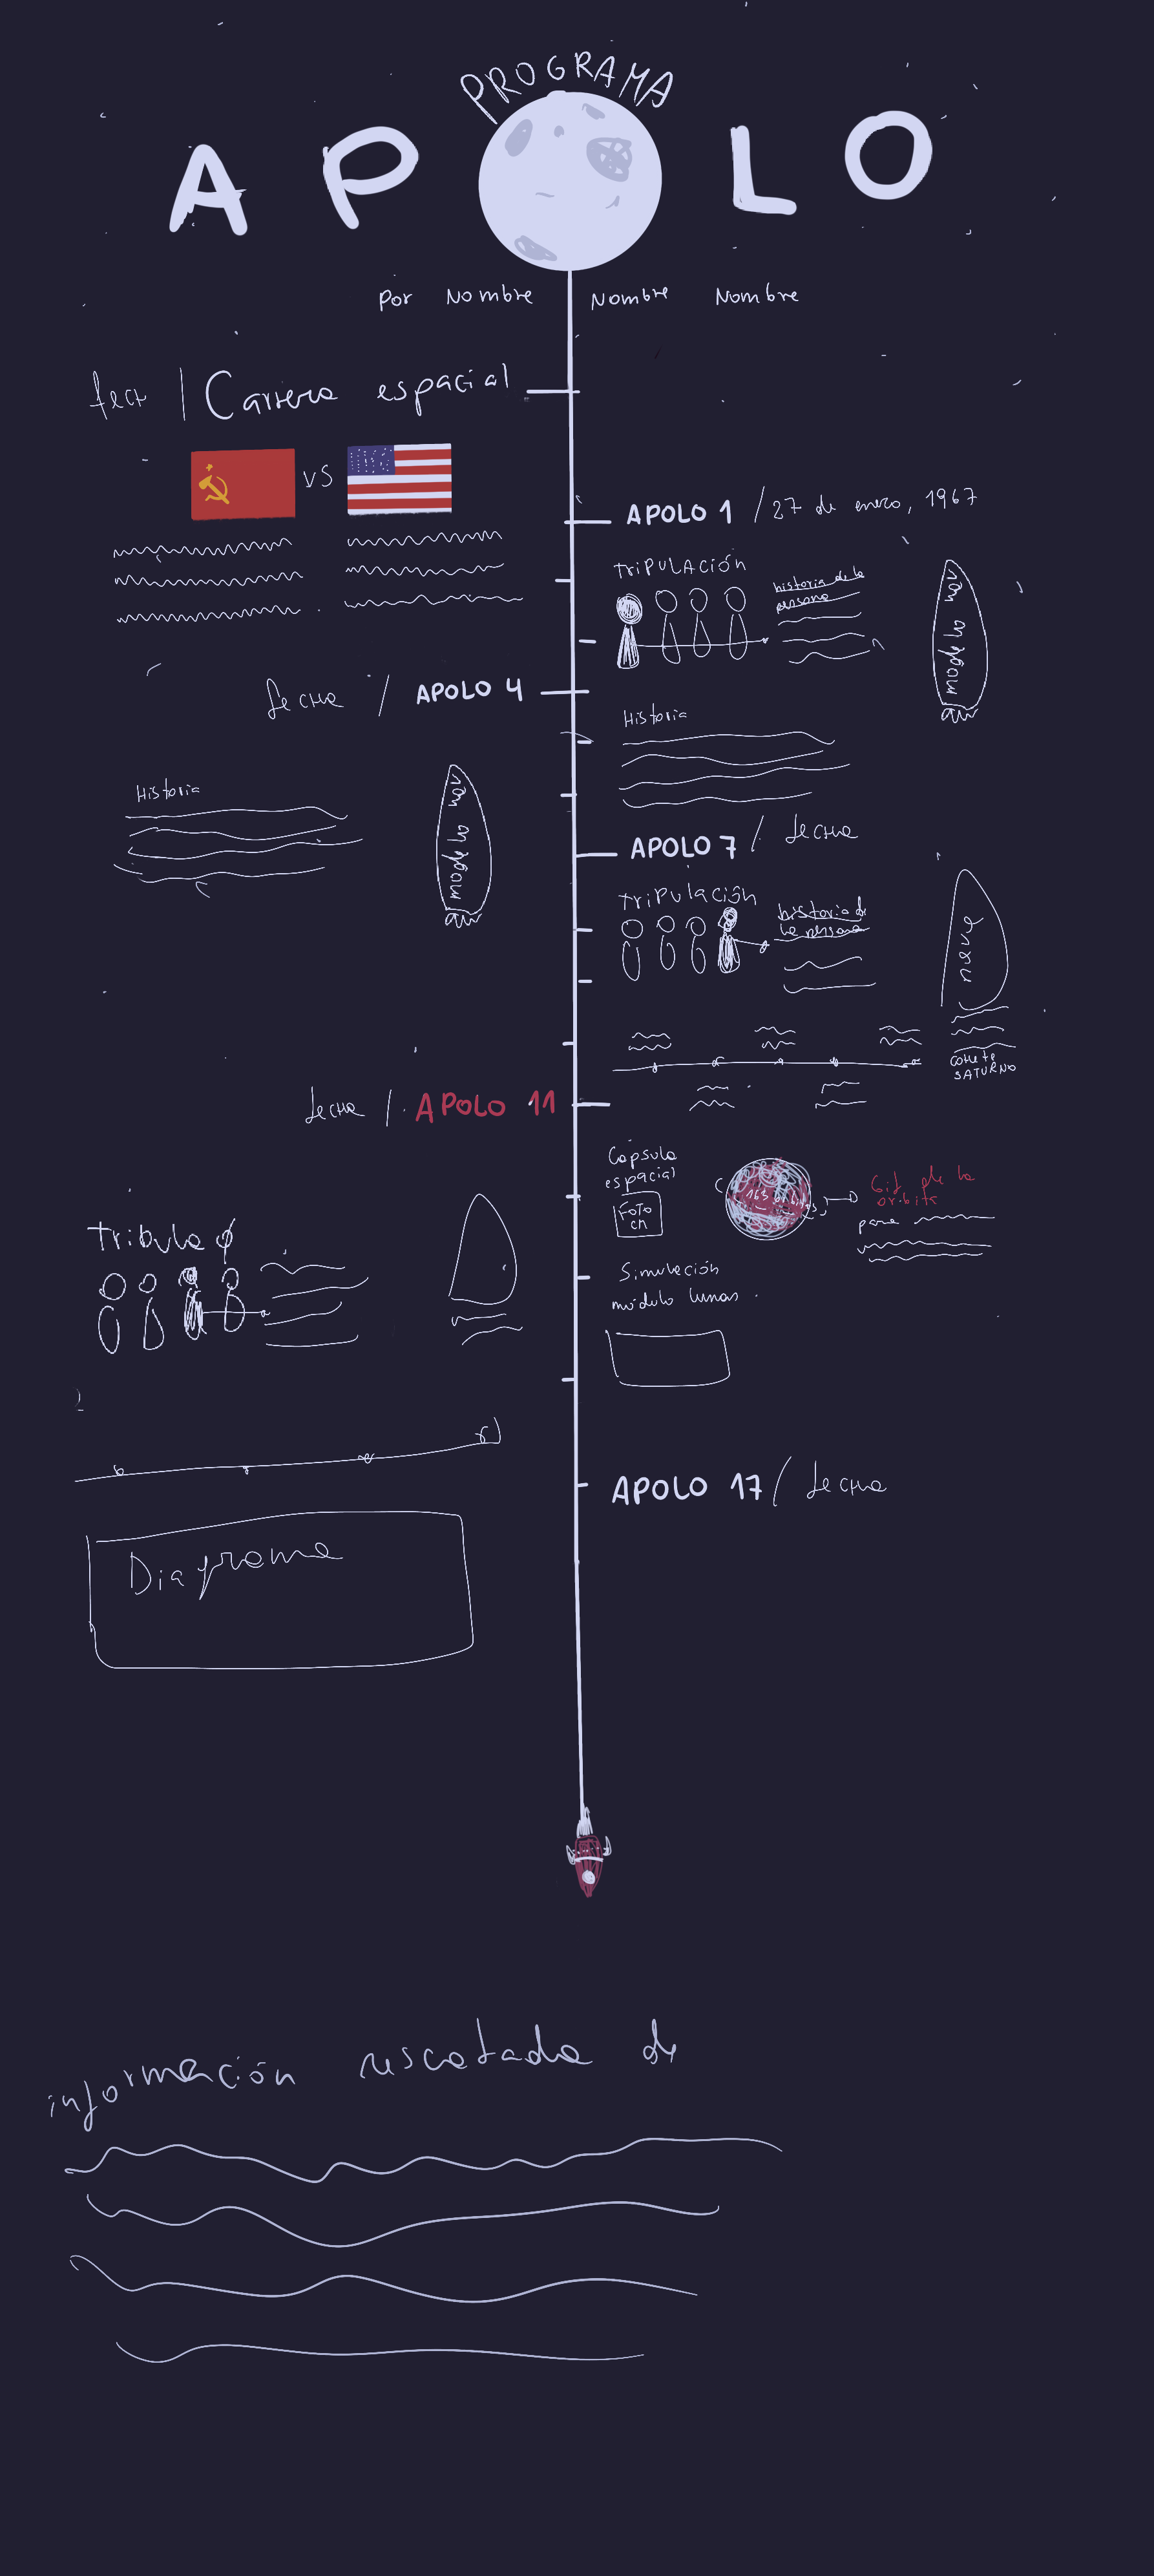 PROGRAMA
AP LO
Por Nombre Nombre Nombre
fech / Carrera espacial
VS
APOLO 1 / 27 de enero, 1967
TRIPULACIÓN
historia de la
persona
fecha / APOLO 4
Historia
Historia
APOLO 7 / fecha
Tripulación
historia de
la persona
nave
cohete
SATURNO
fecha / APOLO 11
Cápsula
espacial
FOTO
CM
163 orbitas
Gif de la
orbita
para
Tribula
Simulación
módulo lunar
APOLO 17 / fecha
Diagrama
información rescatada de